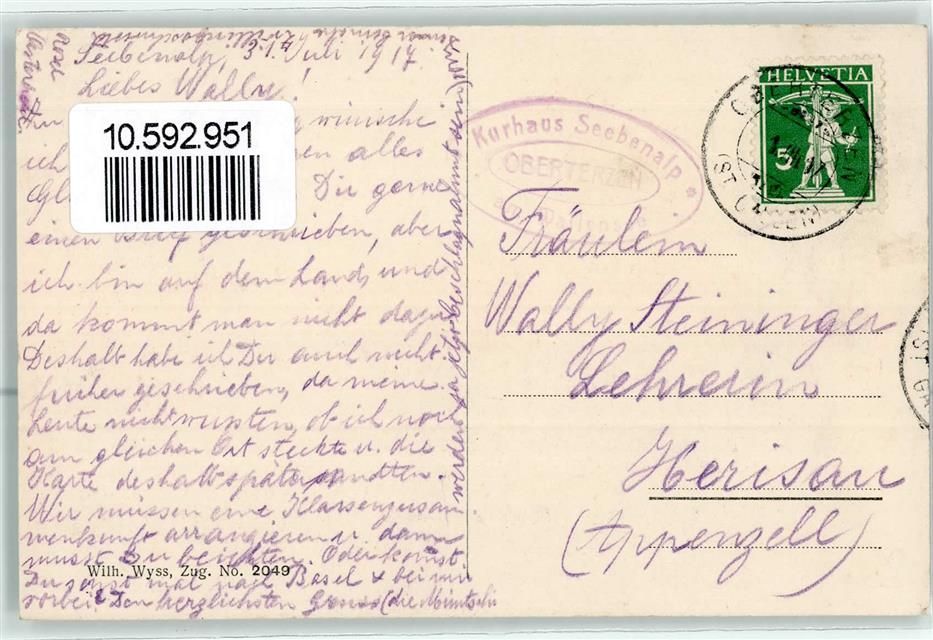 Seebenalp, 31. Juli 1917.
Liebes Wally!
wünsche
ich alles
Dir gerne
einen Brief geschrieben, aber
ich bin auf dem Land, und
da kommt man nicht dazu
Deshalb habe ich Dir auch nicht
früher geschrieben, da meine
Leute nicht wussten, ob ich noch
am gleichen Ort steckte u. die
Karte deshalb später sandten.
Wir müssen eine Klassenzusam
menkunft arrangieren u. dann
musst Du berichten. Oder kommst
Du sonst mal nach Basel & bei mir
vorbei? Den herzlichsten Gruss (die
werden ja jetzt beschlagnahmt sein)
Rosa
10.592.951
Wilh. Wyss, Zug. No. 2049
Kurhaus Seebenalp
OBERTERZEN
HELVETIA
5
OBERTERZEN
(ST. GALLEN)
Fräulein
Wally Steininger
Lehrerin
Herisau
(Appenzell)
(ST. GA